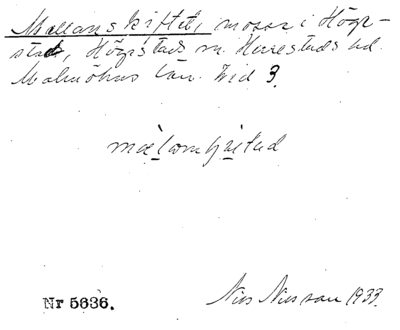 Mellanskiftet, mosse i Högestad, Högestads sn. Herrestads hd.
Malmöhus län. Bid 3.
Nr 5636. Nils Nilsson 1933.